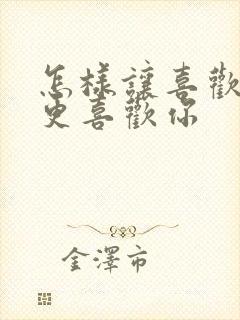 怎樣讓喜歡
更喜歡你
金澤市